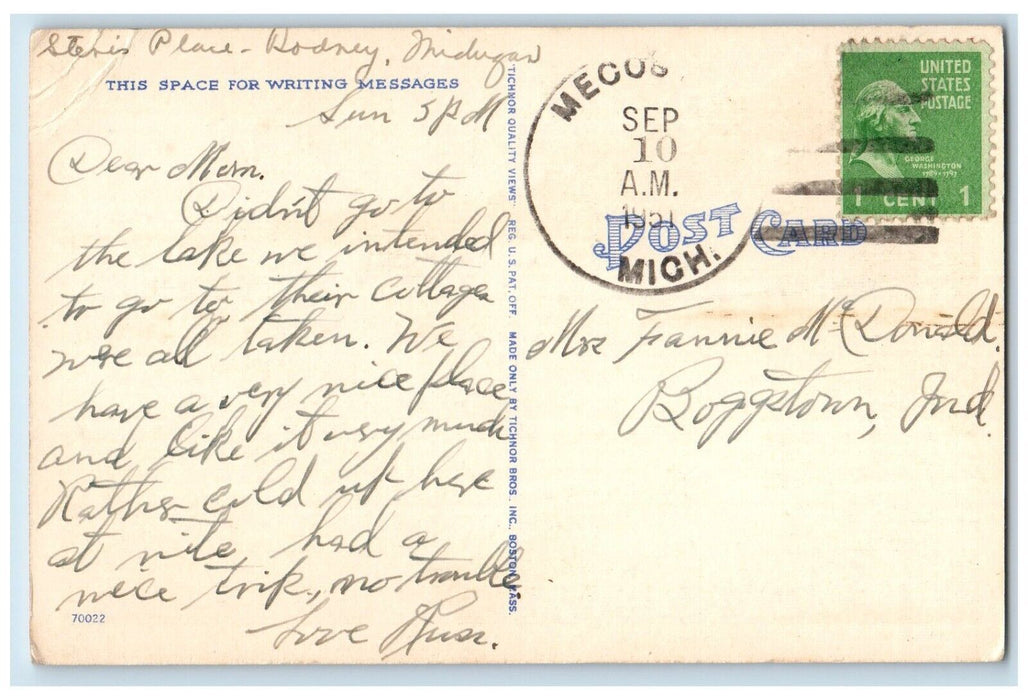 Steves Place - Rodney, Michigan
THIS SPACE FOR WRITING MESSAGES
Sun 5 PM
Dear Mom.
Didn't go to
the lake we intended
to go to, their cottages
were all taken. We
have a very nice place
and like it very much
Rather cold up here
at nite, had a
nice trip, no trouble.
Love Russ.
70022
"TICHNOR QUALITY VIEWS" REG. U.S. PAT. OFF. MADE ONLY BY TICHNOR BROS. INC., BOSTON, MASS.
MECOS
SEP
10
A.M.
1951
MICH.
POST CARD
UNITED
STATES
POSTAGE
GEORGE
WASHINGTON
1789-1797
1 CENT 1
Mrs Fannie McDonald.
Boggstown, Ind.